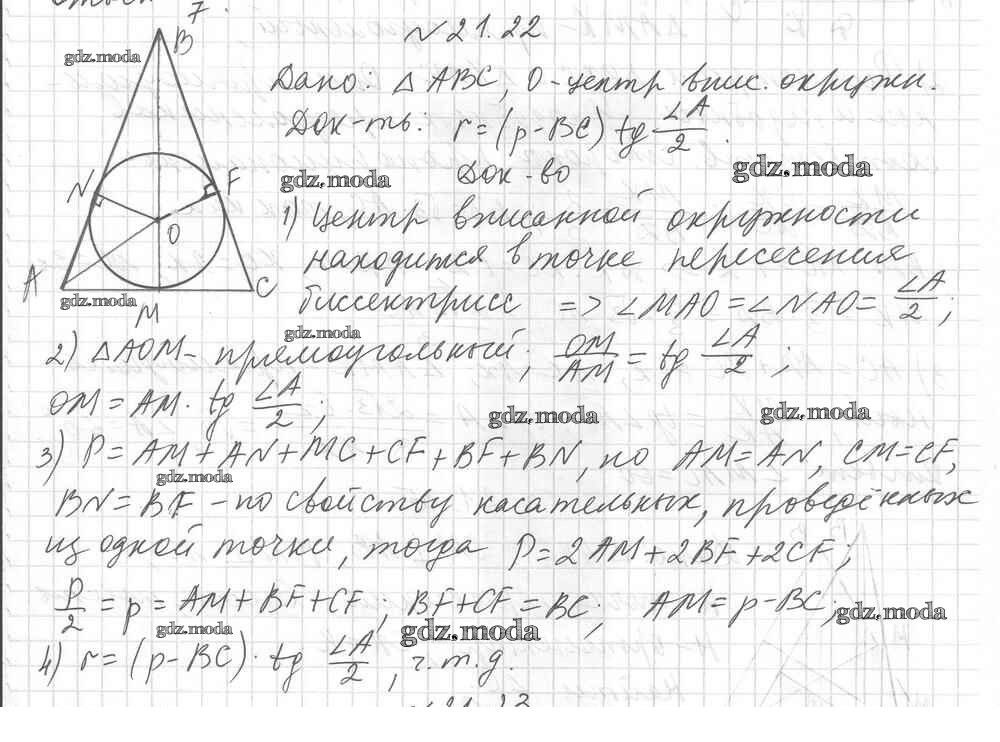 7.
№21.22
B
Дано: △ABC, O-центр впис. окружн.
Док-ть: r=(p-BC) tg ∠A/2.
Док-во
N
F
O
A
C
M
1) Центр вписанной окружности
находится в точке пересечения
биссектрисс => ∠MAO=∠NAO= ∠A/2;
2) △AOM- прямоугольный; OM/AM = tg ∠A/2;
OM = AM · tg ∠A/2;
3) P=AM+AN+MC+CF+BF+BN, но AM=AN, CM=CF,
BN=BF -по свойству касательных, проведённых
из одной точки, тогда P=2AM+2BF+2CF;
P/2 = p = AM+BF+CF; BF+CF=BC; AM=p-BC;
4) r=(p-BC)· tg ∠A/2, ч.т.д.
gdz.moda
gdz.moda
gdz.moda
gdz.moda
gdz.moda
gdz.moda
gdz.moda
gdz.moda
gdz.moda
gdz.moda
gdz.moda